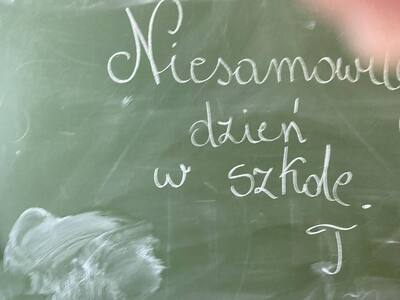 Niesamowite
dzień
w szkole.
J